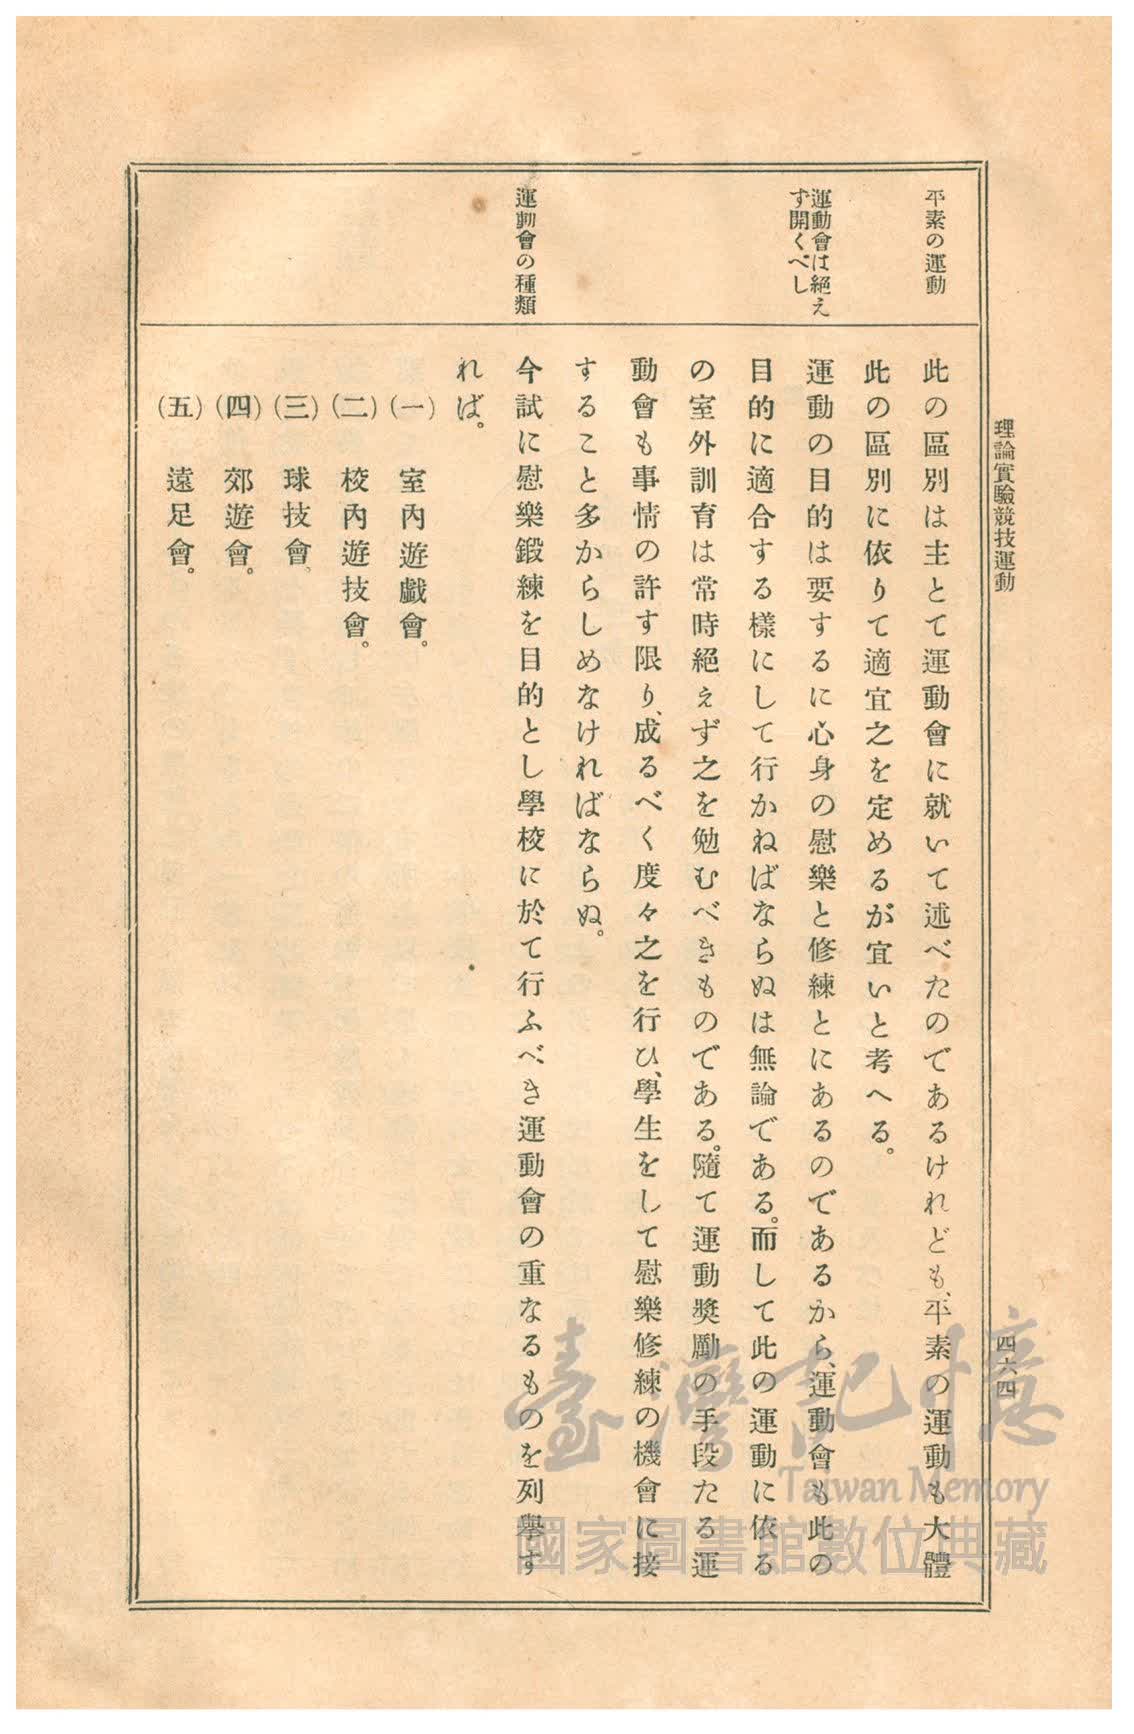 理論實驗競技運動
四六四
平素の運動
運動會は絕え
ず開くべし
運動會の種類
此の區別は主とて運動會に就いて述べたのであるけれども、平素の運動も大體
此の區別に依りて適宜之を定めるが宜いと考へる。
運動の目的は要するに心身の慰樂と修練とにあるのであるから、運動會も此の
目的に適合する樣にして行かねばならぬは無論である。而して此の運動に依る
の室外訓育は常時絕ぇず之を勉むべきものである。隨て運動奬勵の手段たる運
動會も事情の許す限り、成るべく度々之を行ひ、學生をして慰樂修練の機會に接
すること多からしめなければならぬ。
今試に慰樂鍛練を目的とし學校に於て行ふべき運動會の重なるものを列擧す
れば。
(一) 室內遊戲會。
(二) 校內遊技會。
(三) 球技會。
(四) 郊遊會。
(五) 遠足會。
臺灣記憶
Taiwan Memory
國家圖書館數位典藏